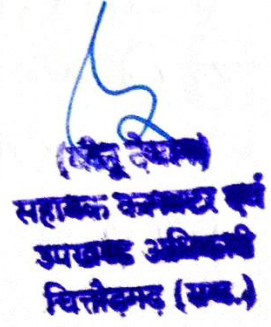 सहायक कलक्टर एवं
उपखण्ड अधिकारी
चित्तौड़गढ़ (राज.)